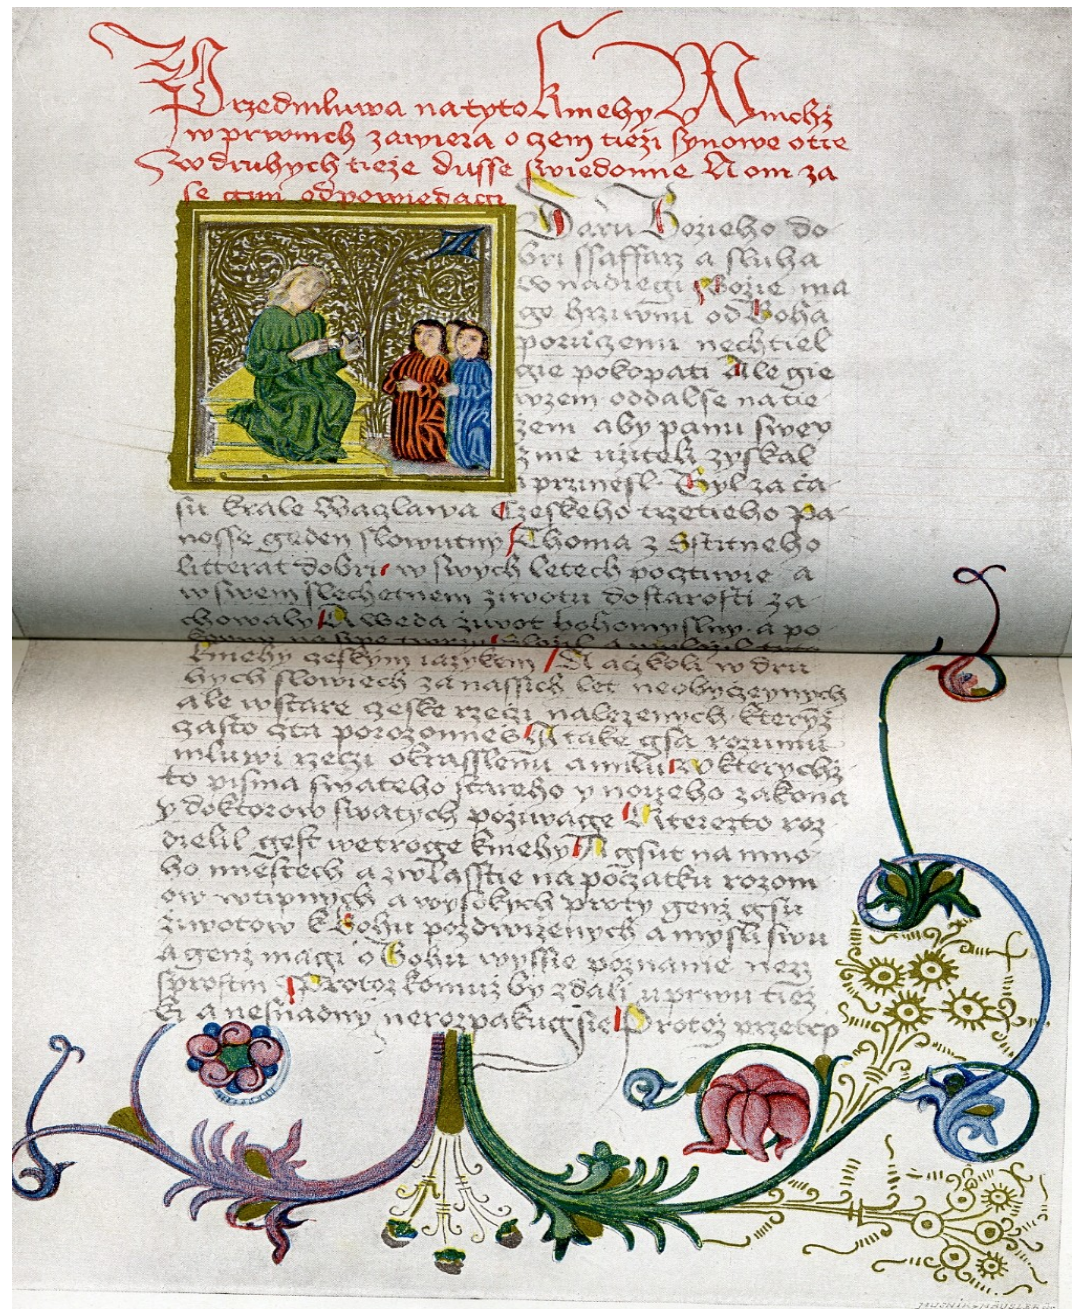 Przedmluwa na tyto kniehy W nichż
w prwnich zawiera o czem tieżi synowe otce
W druhych tieże dusse swiedomie A on za
se gim odpowiedagi
Daru Bożieho do
bri ssaffarz a sluha
w nadiegi Bożie ma
ge hrziwnu od Boha
poruczenu nechtiel
gie pokopati Ale gie
wzem oddal se na tie
żem aby panu swev
zme użiteli zyskal
a prziniesl Byl za ča
su krale Waczlawa Czeskeho trzetieho pa
nosse geden slowutny Thoma z Sstitneho
litterat dobri w swych letech pocztiwie a
w swem slechetnem ziwotu do starosti za
chowaly A weda ziwot bohomyslny a po
kniehy czeskym iazykem A aczkoli w dru
hych slowiech za nassich let neobyczeynych
ale w stare czeske rzeczi nalezenych kteryż
czasto čta porozomnies A take gsa rozumu
mluwi rzeczi okrasslenu a milu W kterychż
to pisma swateho stareho y noweho zakona
y doktorow swatych pożiwage Kterezto roz
dielil gest we troge kniehy A gsut na mno
ho miestech a zwlasstie na poczatku rozom
ow wtipnych a wysokych prwty genż gsu
żiwotow k Bohu pozdwiżenych a mysli swu
a genż magi o Bohu wyssie poznanie neż
sprostni Protoż komuż by zdali u prwu tież
ki a nesnadny nerozpakug sie Protoż przetrp